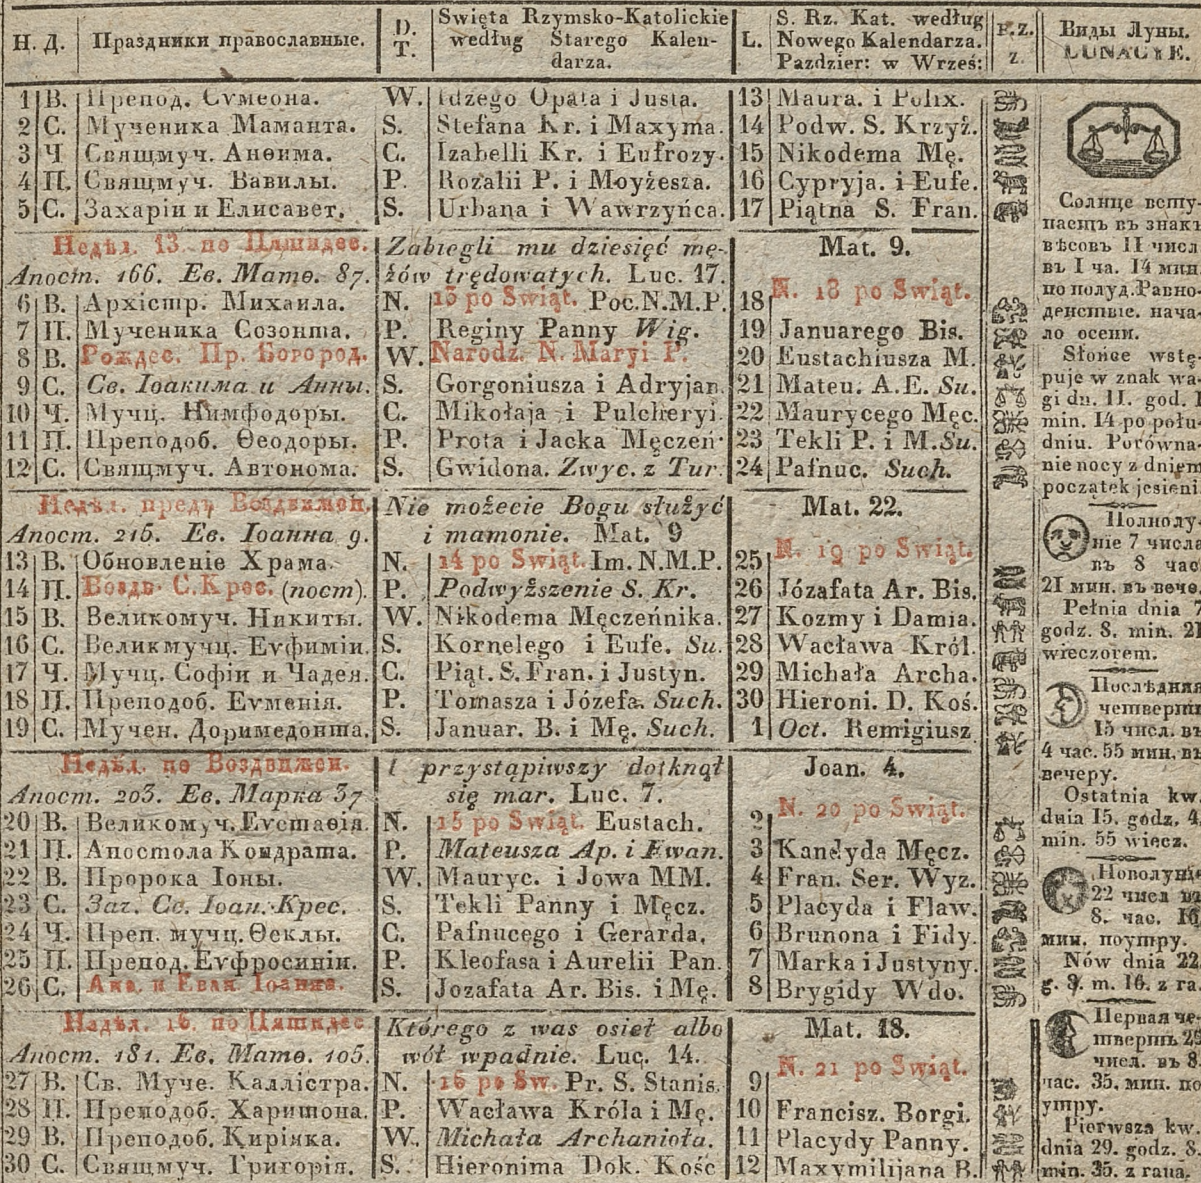 Н. Д. Праздники православные. D. T. Swięta Rzymsko-Katolickie według Starego Kalendarza. L. S. Rz. Kat. według Nowego Kalendarza. Pazdzier: w Wrześ: F.Z. z. Виды Луны. LUNACYE.
1 В. Препод. Сѵмеона. W. Idzego Opata i Justa. 13 Maura. i Polix.
2 С. Мученика Маманта. S. Stefana Kr. i Maxyma. 14 Podw. S. Krzyż.
3 Ч Свящмуч. Анѳима. C. Izabelli Kr. i Eufrozy. 15 Nikodema Mę.
4 П. Свящмуч. Вавилы. P. Rozalii P. i Moyżesza. 16 Cypryja. i Eufe.
5 С. Захаріи и Елисавет. S. Urbana i Wawrzyńca. 17 Piątna S. Fran.
Недѣл. 13. по Пятидес. Zabiegli mu dziesięć mę- Mat. 9.
Апост. 166. Ев. Матѳ. 87. żów trędowatych. Luc. 17.
6 В. Архістр. Михаила. N. 13 po Swiąt. Poc.N.M.P. 18 N. 18 po Swiąt.
7 П. Мученика Созонта. P. Reginy Panny Wig. 19 Januarego Bis.
8 В. Рождес. Пр. Богород. W. Narodz. N. Maryi P. 20 Eustachiusza M.
9 С. Св. Іоакима и Анны. S. Gorgoniusza i Adryjan. 21 Mateu. A.E. Su.
10 Ч. Мучц. Нимфодоры. C. Mikołaja i Pulcheryi. 22 Maurycego Męc.
11 П. Преподоб. Ѳеодоры. P. Prota i Jacka Męczeń. 23 Tekli P. i M. Su.
12 С. Свящмуч. Автонома. S. Gwidona. Zwyc. z Tur. 24 Pafnuc. Such.
Недѣл. предъ Воздвижен. Nie możecie Bogu służyć Mat. 22.
Апост. 215. Ев. Іоанна 9. i mamonie. Mat. 9
13 В. Обновленіе Храма. N. 14 po Swiąt. Im. N.M.P. 25 N. 19 po Swiąt.
14 П. Воздв. С. Крес. (пост). P. Podwyższenie S. Kr. 26 Józafata Ar. Bis.
15 В. Великомуч. Никиты. W. Nikodema Męczeńnika. 27 Kozmy i Damia.
16 С. Великмучц. Еѵфиміи. S. Kornelego i Eufe. Su. 28 Wacława Król.
17 Ч. Мучц. Софіи и Чадея. C. Piąt. S. Fran. i Justyn. 29 Michała Archa.
18 П. Преподоб. Еѵменія. P. Tomasza i Józefa. Such. 30 Hieroni. D. Koś.
19 С. Мучен. Доримедонта. S. Januar. B. i Mę. Such. 1 Oct. Remigiusz
Недѣл. по Воздвижен. I przystąpiwszy dotknął Joan. 4.
Апост. 203. Ев. Марка 37 się mar. Luc. 7.
20 В. Великомуч. Еѵстаѳія. N. 15 po Swiąt. Eustach. 2 N. 20 po Swiąt.
21 П. Апостола Кондрата. P. Mateusza Ap. i Ewan. 3 Kandyda Męcz.
22 В. Пророка Іоны. W. Mauryc. i Jowa MM. 4 Fran. Ser. Wyz.
23 С. Зач. Св. Іоан. Крес. S. Tekli Panny i Męcz. 5 Placyda i Flaw.
24 Ч. Преп. мучц. Ѳеклы. C. Pafnucego i Gerarda. 6 Brunona i Fidy.
25 П. Препод. Еѵфросиніи. P. Kleofasa i Aurelii Pan. 7 Marka i Justyny.
26 С. Апо. и Еван. Іоанна. S. Jozafata Ar. Bis. i Mę. 8 Brygidy Wdo.
Недѣл. 16. по Пятидес Którego z was osieł albo Mat. 18.
Апост. 181. Ев. Матѳ. 105. wół wpadnie. Luc. 14.
27 В. Св. Муче. Каллістра. N. 16 po Sw. Pr. S. Stanis. 9 N. 21 po Swiąt.
28 П. Преподоб. Харитона. P. Wacława Króla i Mę. 10 Francisz. Borgi.
29 В. Преподоб. Киріяка. W. Michała Archanioła. 11 Placydy Panny.
30 С. Свящмуч. Григорія. S. Hieronima Dok. Kośc 12 Maxymilijana B.
Солнце всту-
паетъ въ знакъ
вѣсовъ 11 числ
въ 1 ча. 14 мин
по полуд. Равно-
денствіе. нача-
ло осени.
Słońce wstę-
puje w znak wa-
gi dn. 11. god. 1
min. 14 po połu-
dniu. Porówna-
nie nocy z dniem
początek jesieni
Полнолу-
ніе 7 числа
въ 8 час
21 мин. въ вече.
Pełnia dnia 7
godz. 8. min. 21
wieczorem.
Послѣдняя
четверть
15 числ. въ
4 час. 55 мин. въ
вечеру.
Ostatnia kw.
dnia 15. godz. 4.
min. 55 wiecz.
Новолуніе
22 числ въ
8. час. 16
мин. поутру.
Nów dnia 22
g. 8. m. 16. z ra.
Первая че-
тверть 29
числ. въ 8.
час. 35. мин. по
утру.
Pierwsza kw.
dnia 29. godz. 8.
min. 35. z rana.